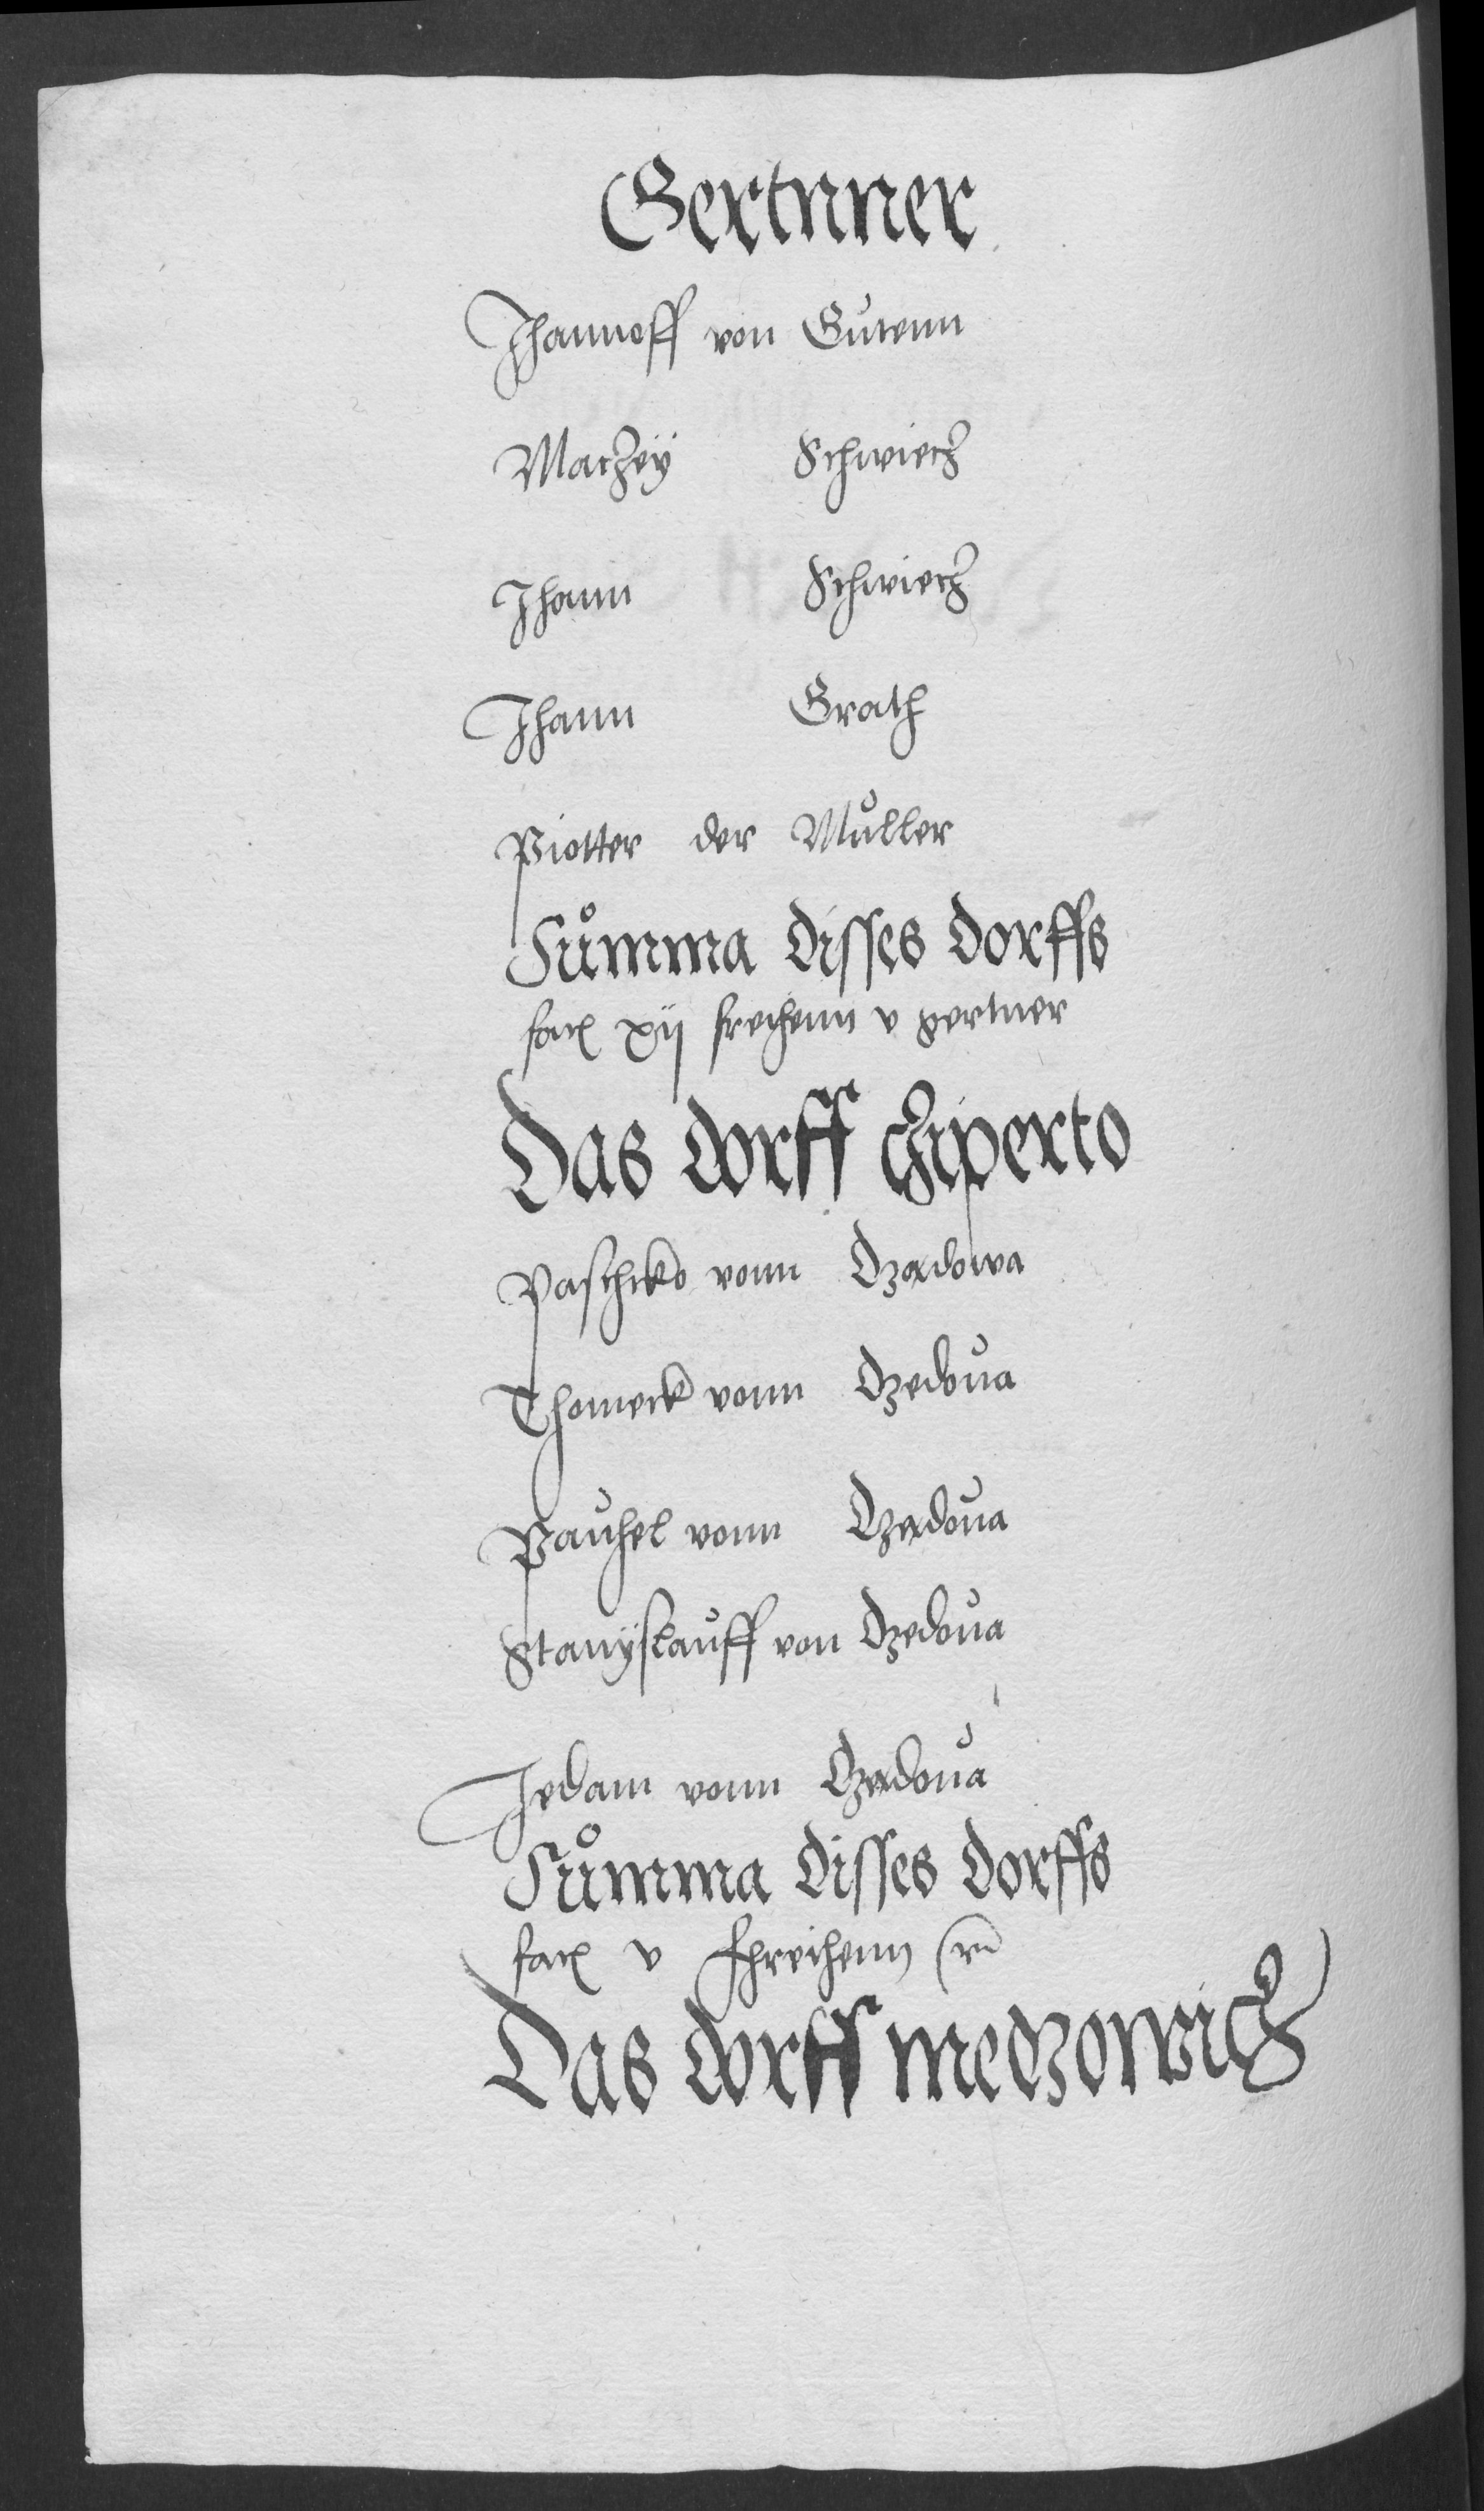 Gertnner
Jhannoff von Gutenn
Maczey Schwiecz
Jhann Schwiecz
Jhann Grath
Piotter der Müller
Summa disses dorffs
fac&ast; xii freihenn v gertner
Das dorff cziperto
Paschko vonn Ozadowa
Thomeck vonn Ozedoua
Pauhel vonn Ozadoua
Stanyslauff von Ozedoua
Jedam vonn Ozadoua
Summa disses dorffs
v fhreihenn
Das dorff medzowicz